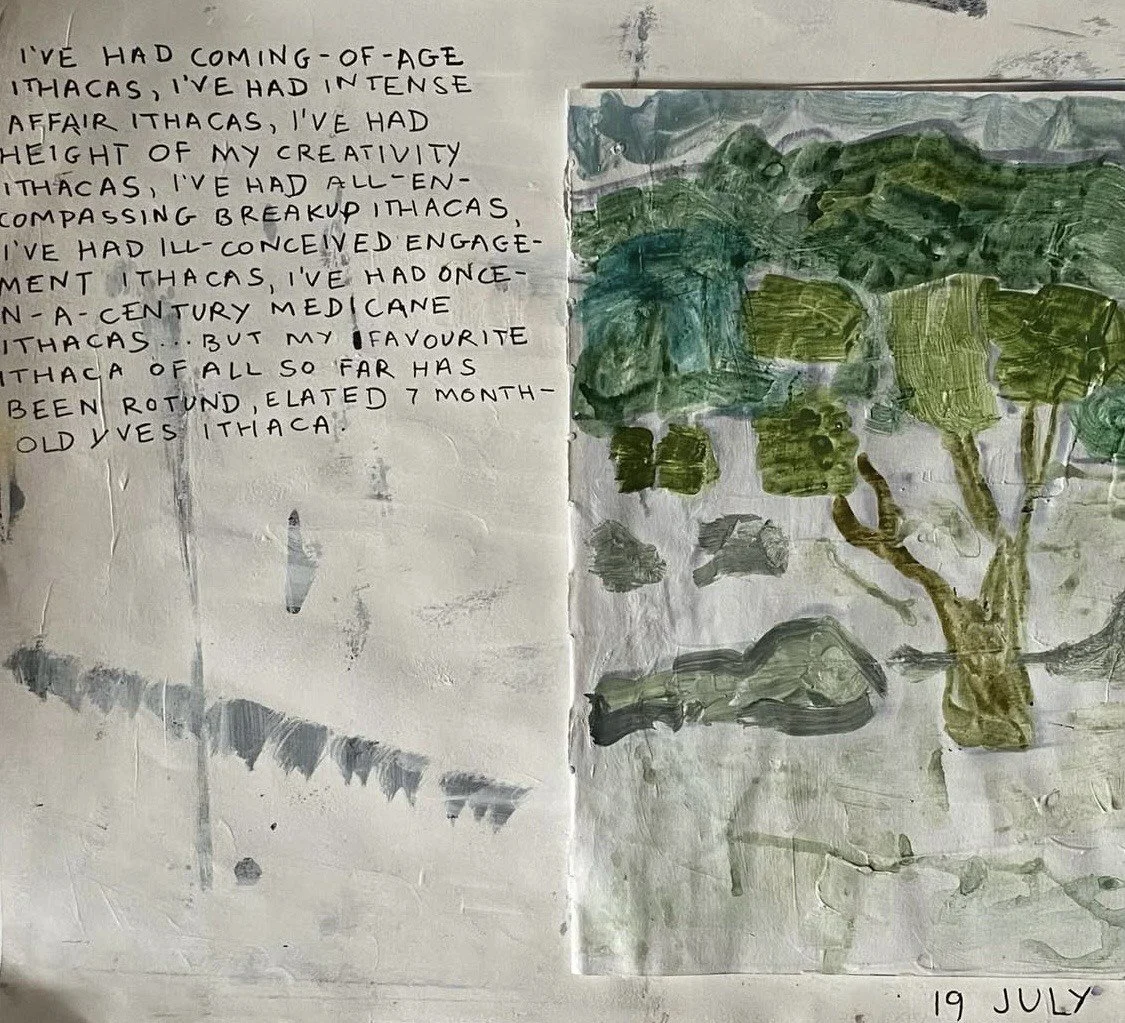 I'VE HAD COMING-OF-AGE
ITHACAS, I'VE HAD INTENSE
AFFAIR ITHACAS, I'VE HAD
HEIGHT OF MY CREATIVITY
ITHACAS, I'VE HAD ALL-EN-
COMPASSING BREAKUP ITHACAS,
I'VE HAD ILL-CONCEIVED ENGAGE-
MENT ITHACAS, I'VE HAD ONCE-
N-A-CENTURY MEDICANE
ITHACAS... BUT MY FAVOURITE
ITHACA OF ALL SO FAR HAS
BEEN ROTUND, ELATED 7 MONTH-
OLD YVES ITHACA.
19 JULY